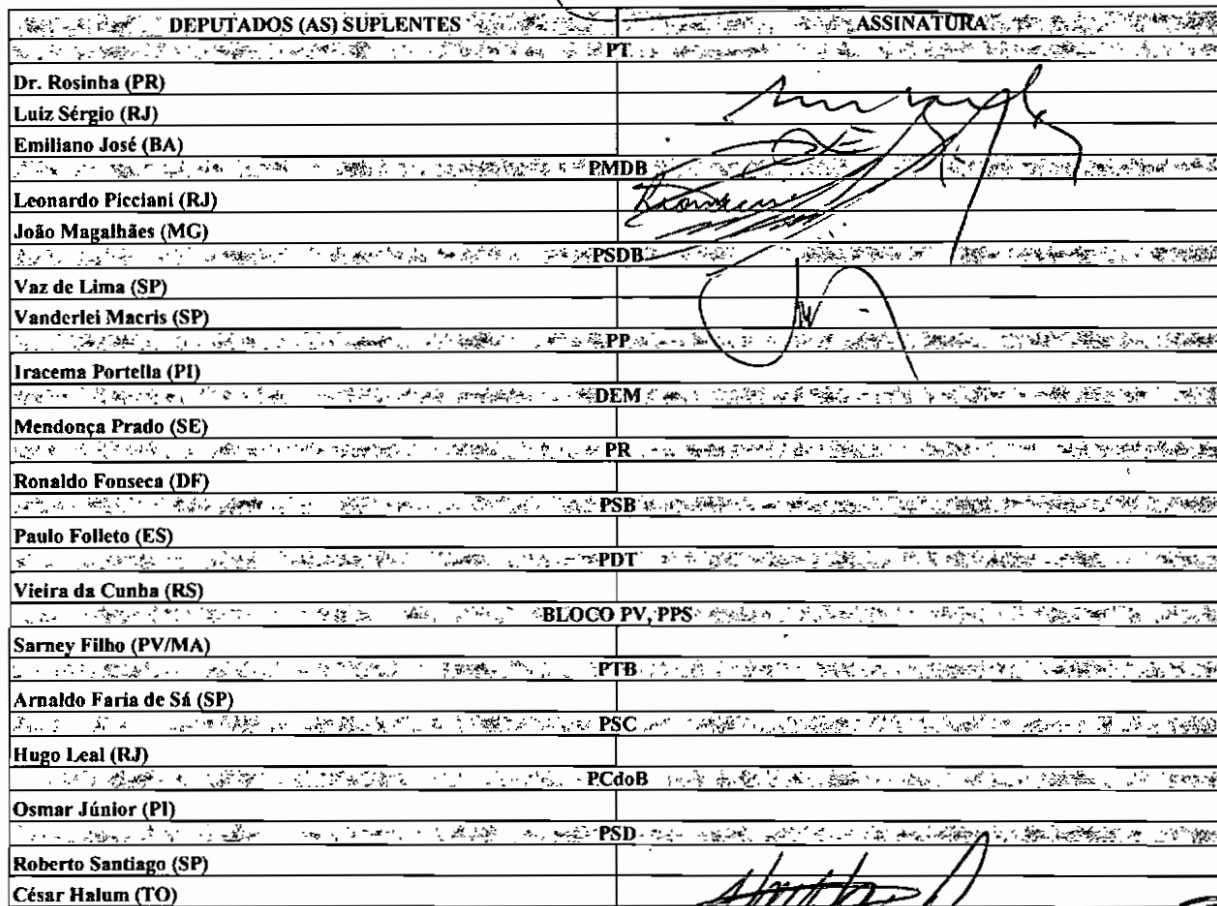 DEPUTADOS (AS) SUPLENTES ASSINATURA
PT
Dr. Rosinha (PR)
Luiz Sérgio (RJ)
Emiliano José (BA)
PMDB
Leonardo Picciani (RJ)
João Magalhães (MG)
PSDB
Vaz de Lima (SP)
Vanderlei Macris (SP)
PP
Iracema Portella (PI)
DEM
Mendonça Prado (SE)
PR
Ronaldo Fonseca (DF)
PSB
Paulo Folleto (ES)
PDT
Vieira da Cunha (RS)
BLOCO PV, PPS
Sarney Filho (PV/MA)
PTB
Arnaldo Faria de Sá (SP)
PSC
Hugo Leal (RJ)
PCdoB
Osmar Júnior (PI)
PSD
Roberto Santiago (SP)
César Halum (TO)